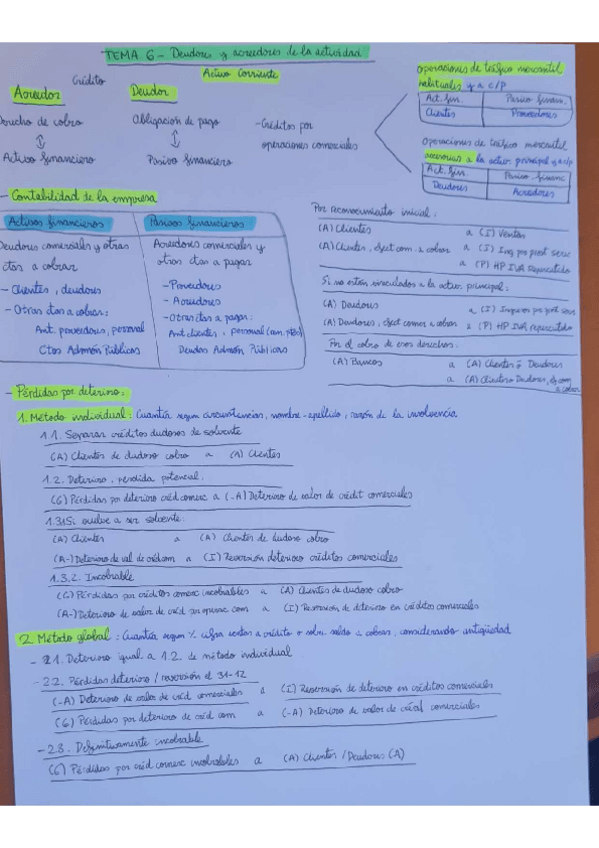 TEMA 6 - Deudores y acreedores de la actividad
Activo Corriente
Crédito
Acreedor
Deudor
Derecho de cobro
Obligación de pago
Activo financiero
Pasivo financiero
- Créditos por
operaciones comerciales
Operaciones de tráfico mercantil
habituales y a c/p
Act. fin. Pasivo financ.
Clientes Proveedores
Operaciones de tráfico mercantil
accesorias a la activ. principal y a c/p
Act. fin. Pasivo financ
Deudores Acreedores
- Contabilidad de la empresa
Activos financieros Pasivos financieros
Deudores comerciales y otras
ctas a cobrar
- Clientes, deudores
- Otras ctas a cobrar:
Ant. proveedores, personal
Ctos Admón Públicas
Acreedores comerciales y
otras ctas a pagar
- Proveedores
- Acreedores
- Otras ctas a pagar:
Ant clientes, personal
Deudas Admón Públicas
Por reconocimiento inicial:
(A) Clientes a (I) Ventas
(A) Clientes, efect com. a cobrar a (I) Ing por prest serv
a (P) HP IVA Repercutido
Si no están vinculados a la activ. principal:
(A) Deudores a (I) Ingresos por prest serv
(A) Deudores, efect comer a cobrar a (P) HP IVA repercutido
Por el cobro de esos derechos:
(A) Bancos a (A) Clientes o Deudores
a (A) Clientes o Deudores, ef com
a cobrar
- Pérdidas por deterioro:
1. Método individual: Cuantía según circunstancias, nombre-apellido, razón de la insolvencia
1.1. Separar créditos dudosos de solvente
(A) Clientes de dudoso cobro a (A) Clientes
1.2. Deterioro, perdida potencial:
(G) Pérdidas por deterioro créd comerc a (-A) Deterioro de valor de crédit comerciales
1.3.1 Si vuelve a ser solvente:
(A) Clientes a (A) Clientes de dudoso cobro
(A-) Deterioro de val de créd com a (I) Reversión deterioro créditos comerciales
1.3.2. Incobrable
(G) Pérdidas por créditos comerc incobrables a (A) Clientes de dudoso cobro
(A-) Deterioro de valor de créd por operac com a (I) Reversión de deterioro en créditos comerciales
2. Método global: Cuantía según % cifra ventas a crédito o sobre saldo a cobrar, considerando antigüedad
- 2.1. Deterioro igual a 1.2. de método individual
- 2.2. Pérdidas deterioro / reversión el 31-12
(-A) Deterioro de valor de créd comerciales a (I) Reversión de deterioro en créditos comerciales
(G) Pérdidas por deterioro de créd com a (-A) Deterioro de valor de créd comerciales
- 2.3. Definitivamente incobrable
(G) Pérdidas por créd comerc incobrables a (A) Clientes / Deudores (A)